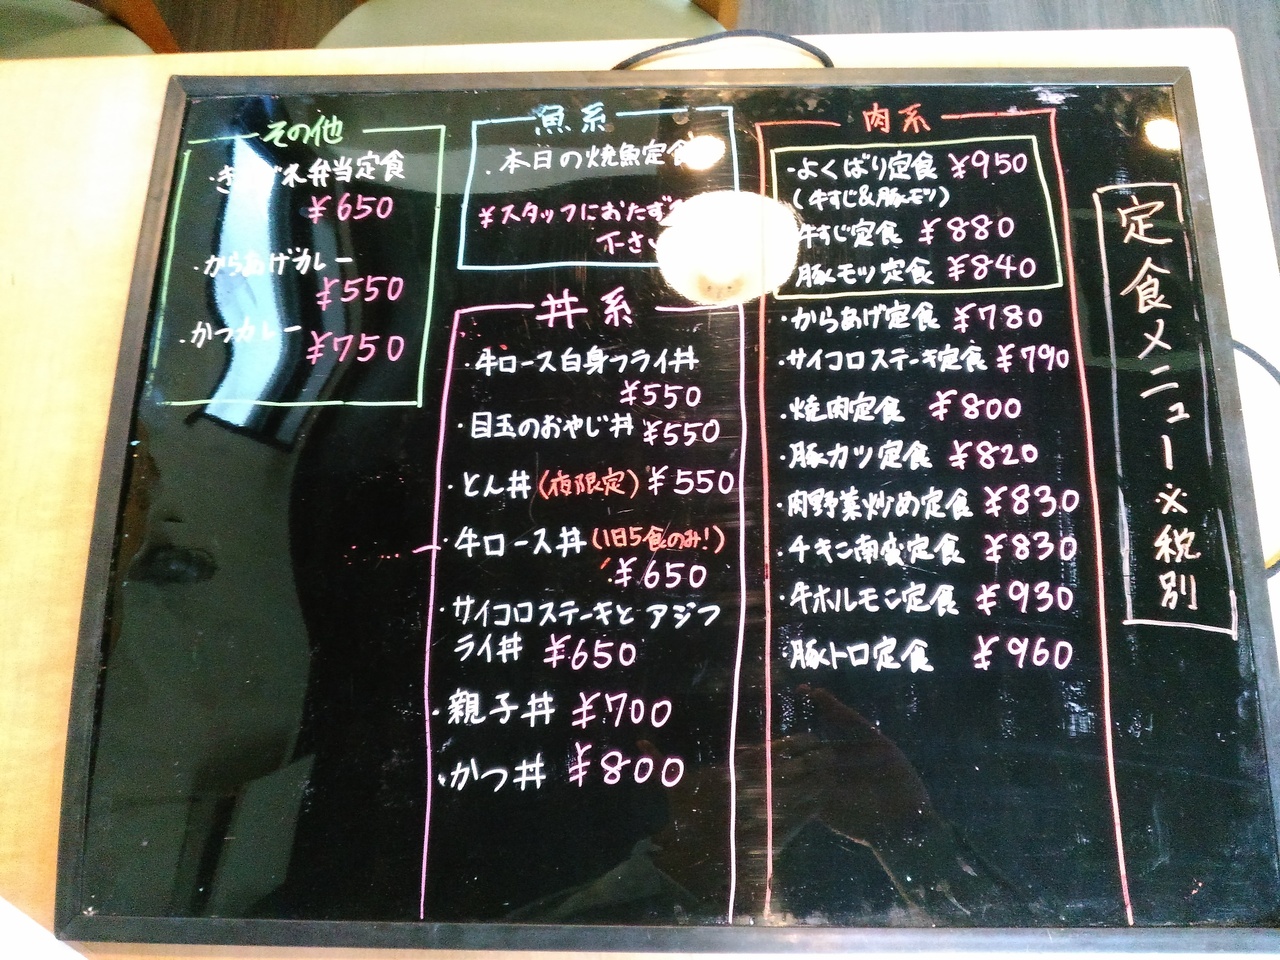 定食メニュー※税別
肉系
・よくばり定食 ¥950
(牛すじ&豚モツ)
牛すじ定食 ¥880
豚モツ定食 ¥840
・からあげ定食 ¥780
・サイコロステーキ定食 ¥790
・焼肉定食 ¥800
・豚カツ定食 ¥820
・肉野菜炒め定食 ¥830
・チキン南蛮定食 ¥830
・牛ホルモン定食 ¥930
・豚トロ定食 ¥960
魚系
・本日の焼魚定食
¥スタッフにおたずね
下さい
丼系
・牛ロース白身フライ丼
¥550
・目玉のおやじ丼 ¥550
・とん丼(夜限定) ¥550
・牛ロース丼(1日5食のみ!)
¥650
・サイコロステーキとアジフ
ライ丼 ¥650
・親子丼 ¥700
・かつ丼 ¥800
その他
弁当定食
¥650
・からあげカレー
¥550
・かつカレー
¥750